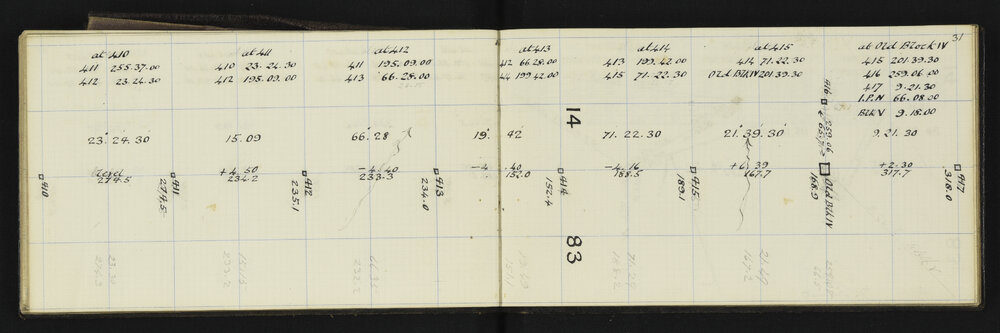 31
at 410
411 255.37.00
412 23.24.30
at 411
410 23.24.30
412 195.09.00
at 412
411 195.09.00
413 66.28.00
at 413
412 66.28.00
414 199.42.00
at 414
413 199.42.00
415 71.22.30
at 415
414 71.22.30
Old Blk IV 201.39.30
at Old Block IV
415 201.39.30
416 259.06.00
417 9.21.30
I.P.N 66.08.00
Blk V 9.18.00
23.24.30
15.09
66.28
19.42
71.22.30
21.39.30
9.21.30
416
259.06
Level
274.5
+4.50
234.2
-4.40
233.3
-4.40
152.0
-4.16
188.5
+6.39
167.7
+2.30
317.7
410
411
274.5
412
235.1
413
234.0
414
152.4
415
189.1
Old Blk IV
168.9
417
318.0
14
83